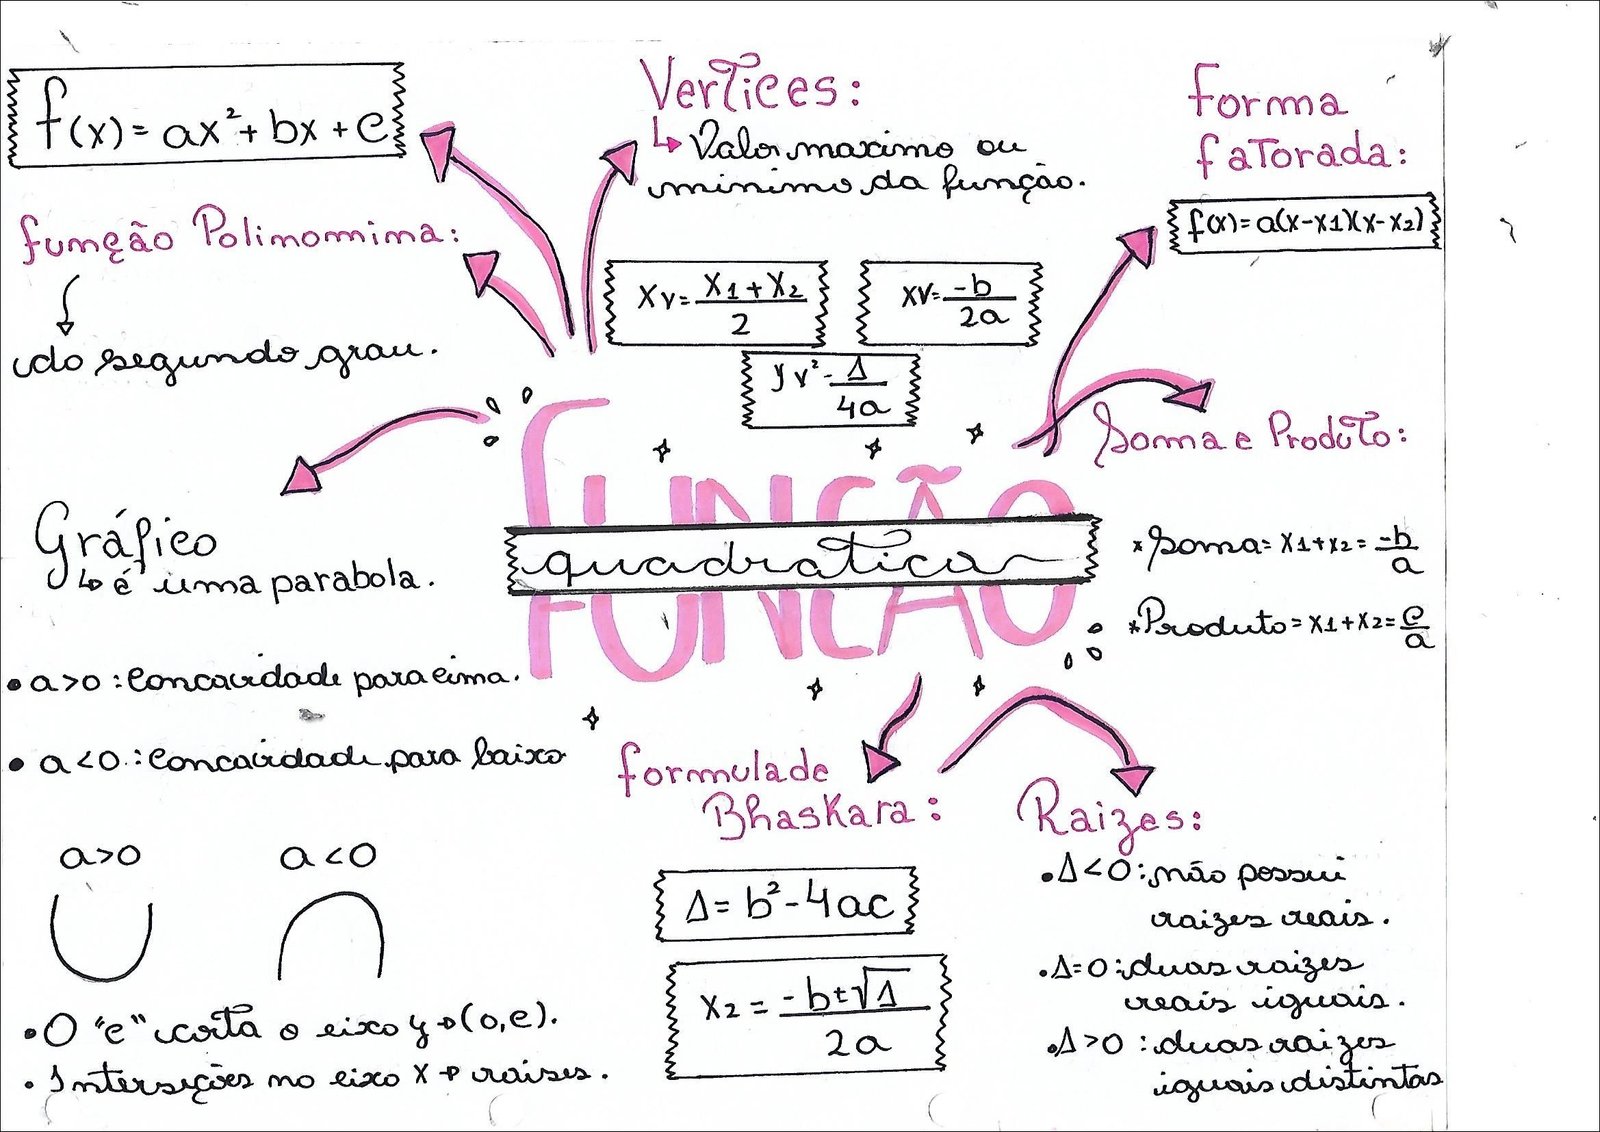 f(x) = ax² + bx + c
função Polinomima:
do segundo grau.
Vertices:
↳ Valor maximo ou
minimo da função.
Xv = X1 + X2 / 2
XV = -b / 2a
yv² - Δ / 4a
forma
faTorada:
f(x) = a(x-x1)(x-x2)
Soma e Produto:
* Soma = X1+x2 = -b/a
* Produto = X1+X2 = c/a
FUNÇÃO
quadratica
Gráfico
↳ é uma parabola.
• a>0 : Concavidade para cima.
• a<0 : Concavidade para baixo
a>0
a<0
• O "c" corta o eixo y → (0,c).
• Interseções no eixo X → raises.
formula de
Bhaskara:
Δ = b² - 4ac
X2 = -b ± √Δ / 2a
Raizes:
• Δ<0 : não possui
raizes reais.
• Δ=0 : duas raizes
reais iguais.
• Δ>0 : duas raizes
iguais distintas